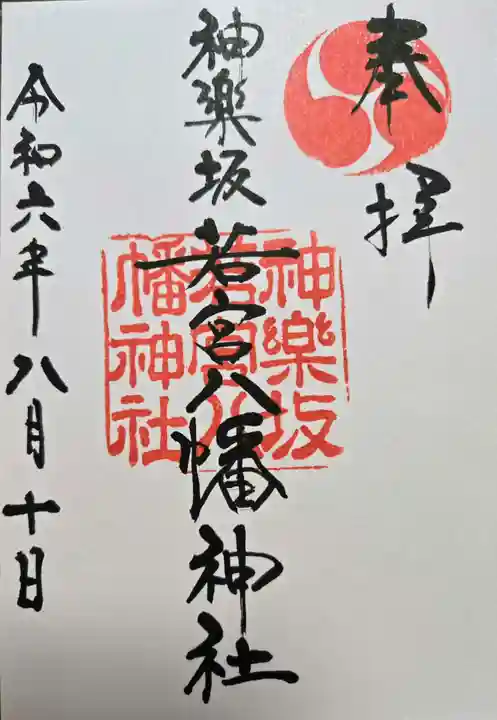 奉拝
神樂坂若宮八幡神社
神樂坂
若宮八
幡神社
令和六年八月十日